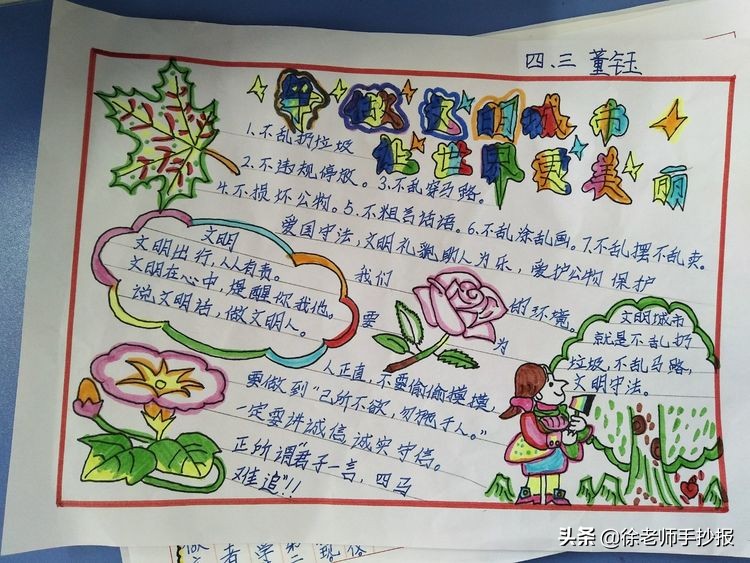 四.三 董钰
争做文明城市
让世界更美丽
1.不乱扔垃圾
2.不违规停放。3.不乱穿马路。
4.不损坏公物。5.不粗言话语。6.不乱涂乱画。7.不乱摆不乱卖。
爱国守法,文明礼貌助人为乐,爱护公物 保护
我们 的环境。
要 为
人正直,不要偷偷摸摸,
要做到"己所不欲,勿施于人。"
一定要讲诚信诚实守信。
正所谓"君子一言,四马
难追"!!
文明
文明出行,人人有责。
文明在心中,提醒你我他。
说文明话,做文明人。
文明城市
就是不乱扔
垃圾,不乱马路,
文明守法。
头条 @徐老师手抄报